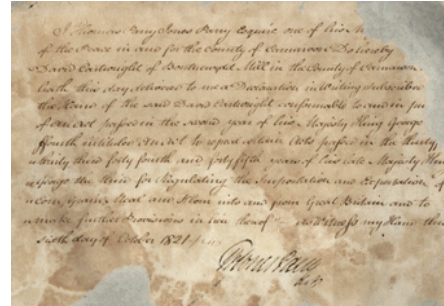 I Thomas Parry Jones Parry Esquire one of his M
of the Peace in and for the County of Carnarvon Do hereby
David Cartwright of Bontnewydd Mill in the County of Carnarvon
hath this day delivered to me a Declaration in Writing subscribed
the Name of the said David Cartwright conformable to and in pu
of an Act passed in the second year of his Majesty King George
ffourth intituled An Act to repeal certain Acts passed in the thirty
ninety third forty fourth and forty fifth years of his late Majesty
George the third for Regulating the Importation and Exportation of
Corn, Grain, Meal and Flour into and from Great Britain and to
make further Provisions in lieu thereof As Witness my Hand this
Sixth day of October 1821